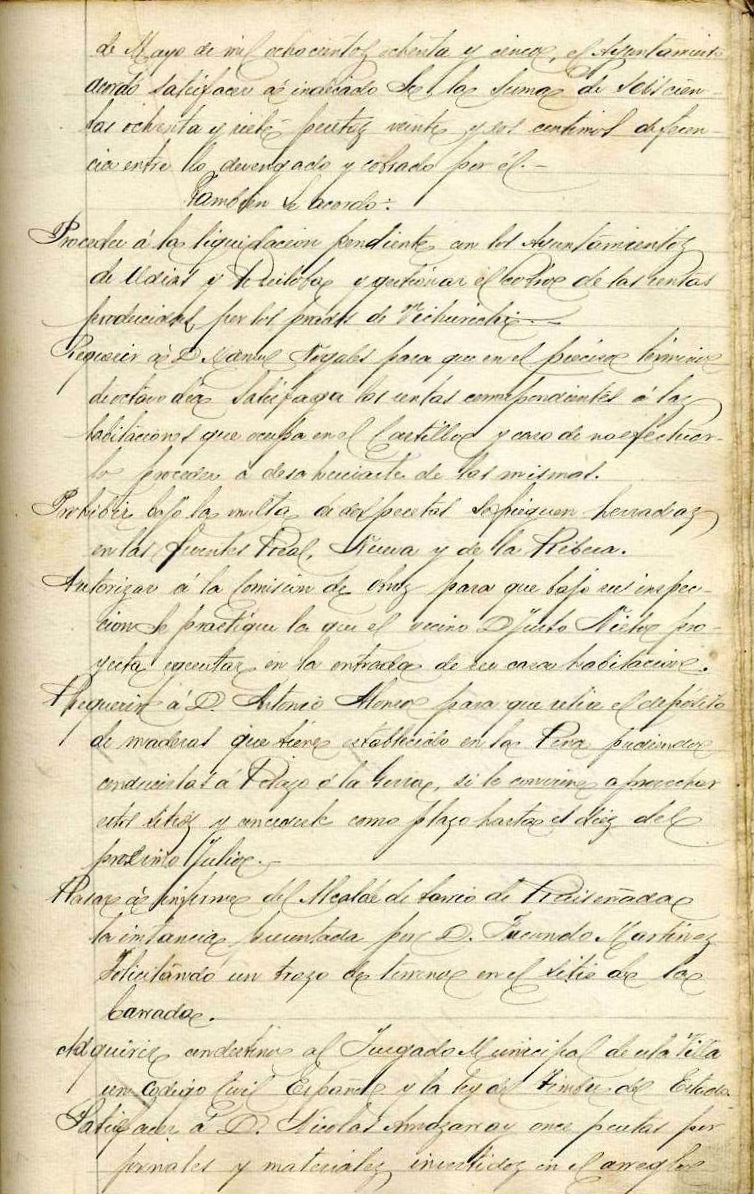 de Mayo de mil ochocientos ochenta y cinco, el Ayuntamiento
acordo satisfacer al indicado la suma de seiscien-
tas ochenta y siete pesetas veinte y dos centimos diferen-
cia entre lo devengado y cobrado por él.-
Tambien se acordo:
Proceder á la liquidacion pendiente con los Ayuntamientos
de Udias y Ruiloba y gestionar el cobro de las rentas
producidas por los prados de
Requerir á D. Manuel para que en el preciso término
de octavo dia satisfaga las rentas correspondientes á las
habitaciones que ocupa en el Castillo y caso de no efectuar-
lo proceder a desahuciarle de las mismas.
Prohibir bajo la multa de dos pesetas se frieguen herradas
en las fuentes Real, Nueva y de la Ribera.
Autorizar á la Comision de obras para que bajo su inspec-
cion se practique la que el vecino D. Justo Nieto pro-
yecta ejecutar en la entrada de su casa habitacion.
Requerir á D. Antonio Alonso para que retire el depósito
de maderas que tiene establecido en la Pena pudiendo
conducirlas á ó la, si le conviene aprovechar
estos sitios y concederle como plazo hasta el diez del
proximo Julio.-
Pasar á informe del Alcalde de barrio de Ruiseñada
la instancia presentada por D. Facundo Martinez
solicitando un trozo de terreno en el sitio de la
barrada.
Adquirir con destino al Juzgado Municipal de esta Villa
un Codigo Civil Español y la ley del Timbre del Estado.
Satisfacer á D. Nicolás once pesetas por
jornales y materiales invertidos en el arreglo